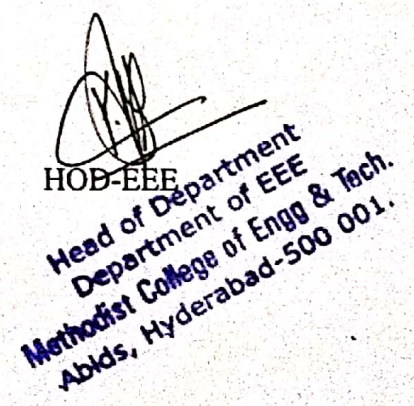 HOD-EEE
Head of Department
Department of EEE
Methodist College of Engg & Tech.
Abids, Hyderabad-500 001.